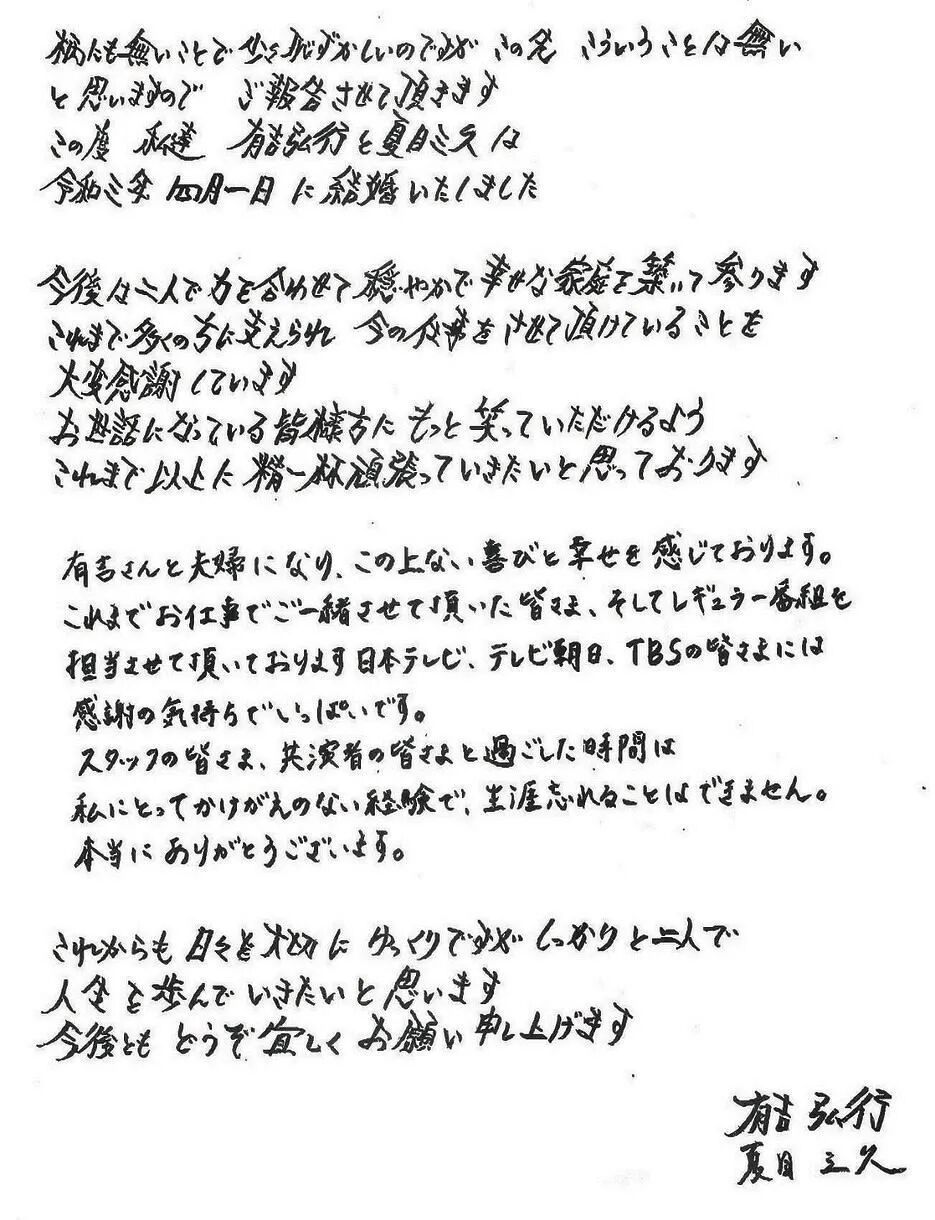 柄にも無いことで少々恥ずかしいのですが この先 こういうことは無い
と思いますので ご報告させて頂きます
この度 私達 有吉弘行と夏目三久は
令和三年 四月一日 に結婚いたしました
今後は二人で力を合わせて 穏やかで幸せな家庭を築いて参ります
これまで多くの方に支えられ 今の仕事をさせて頂けていることを
大変感謝しています
お世話になっている皆様方に もっと笑っていただけるよう
これまで以上に 精一杯頑張っていきたいと思っております
有吉さんと夫婦になり、この上ない喜びと幸せを感じております。
これまでお仕事でご一緒させて頂いた皆さま、そしてレギュラー番組を
担当させて頂いております日本テレビ、テレビ朝日、TBSの皆さまには
感謝の気持ちでいっぱいです。
スタッフの皆さま、共演者の皆さまと過ごした時間は
私にとってかけがえのない経験で、生涯忘れることはできません。
本当にありがとうございます。
これからも 日々を大切に ゆっくりですが しっかりと二人で
人生を歩んでいきたいと思います
今後とも どうぞ宜しくお願い申し上げます
有吉弘行
夏目三久